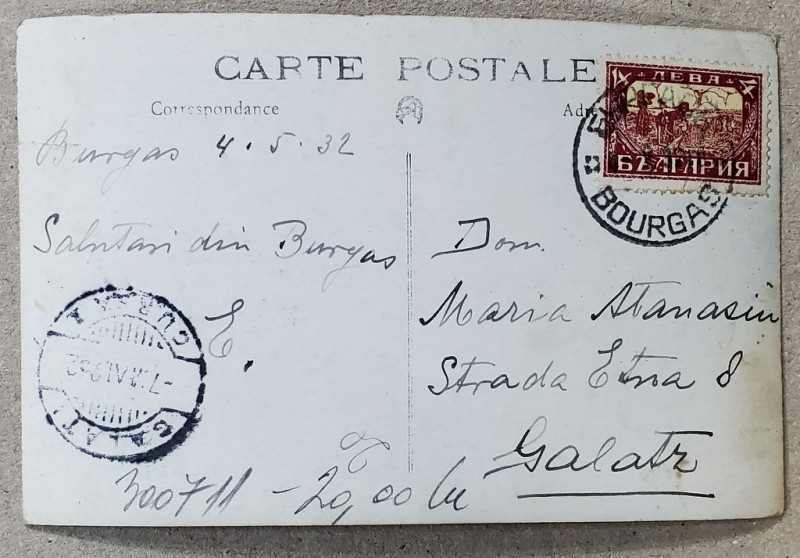 CARTE POSTALE
Correspondance
Adre
4 ЛЕВА 4
БЪЛГАРИЯ
BOURGAS
Burgas 4.5.32
Salutari din Burgas
E.
Dom.
Maria Atanasiu
Strada Etna 8
Galatz
GALATI
300711 - 20,00 lei